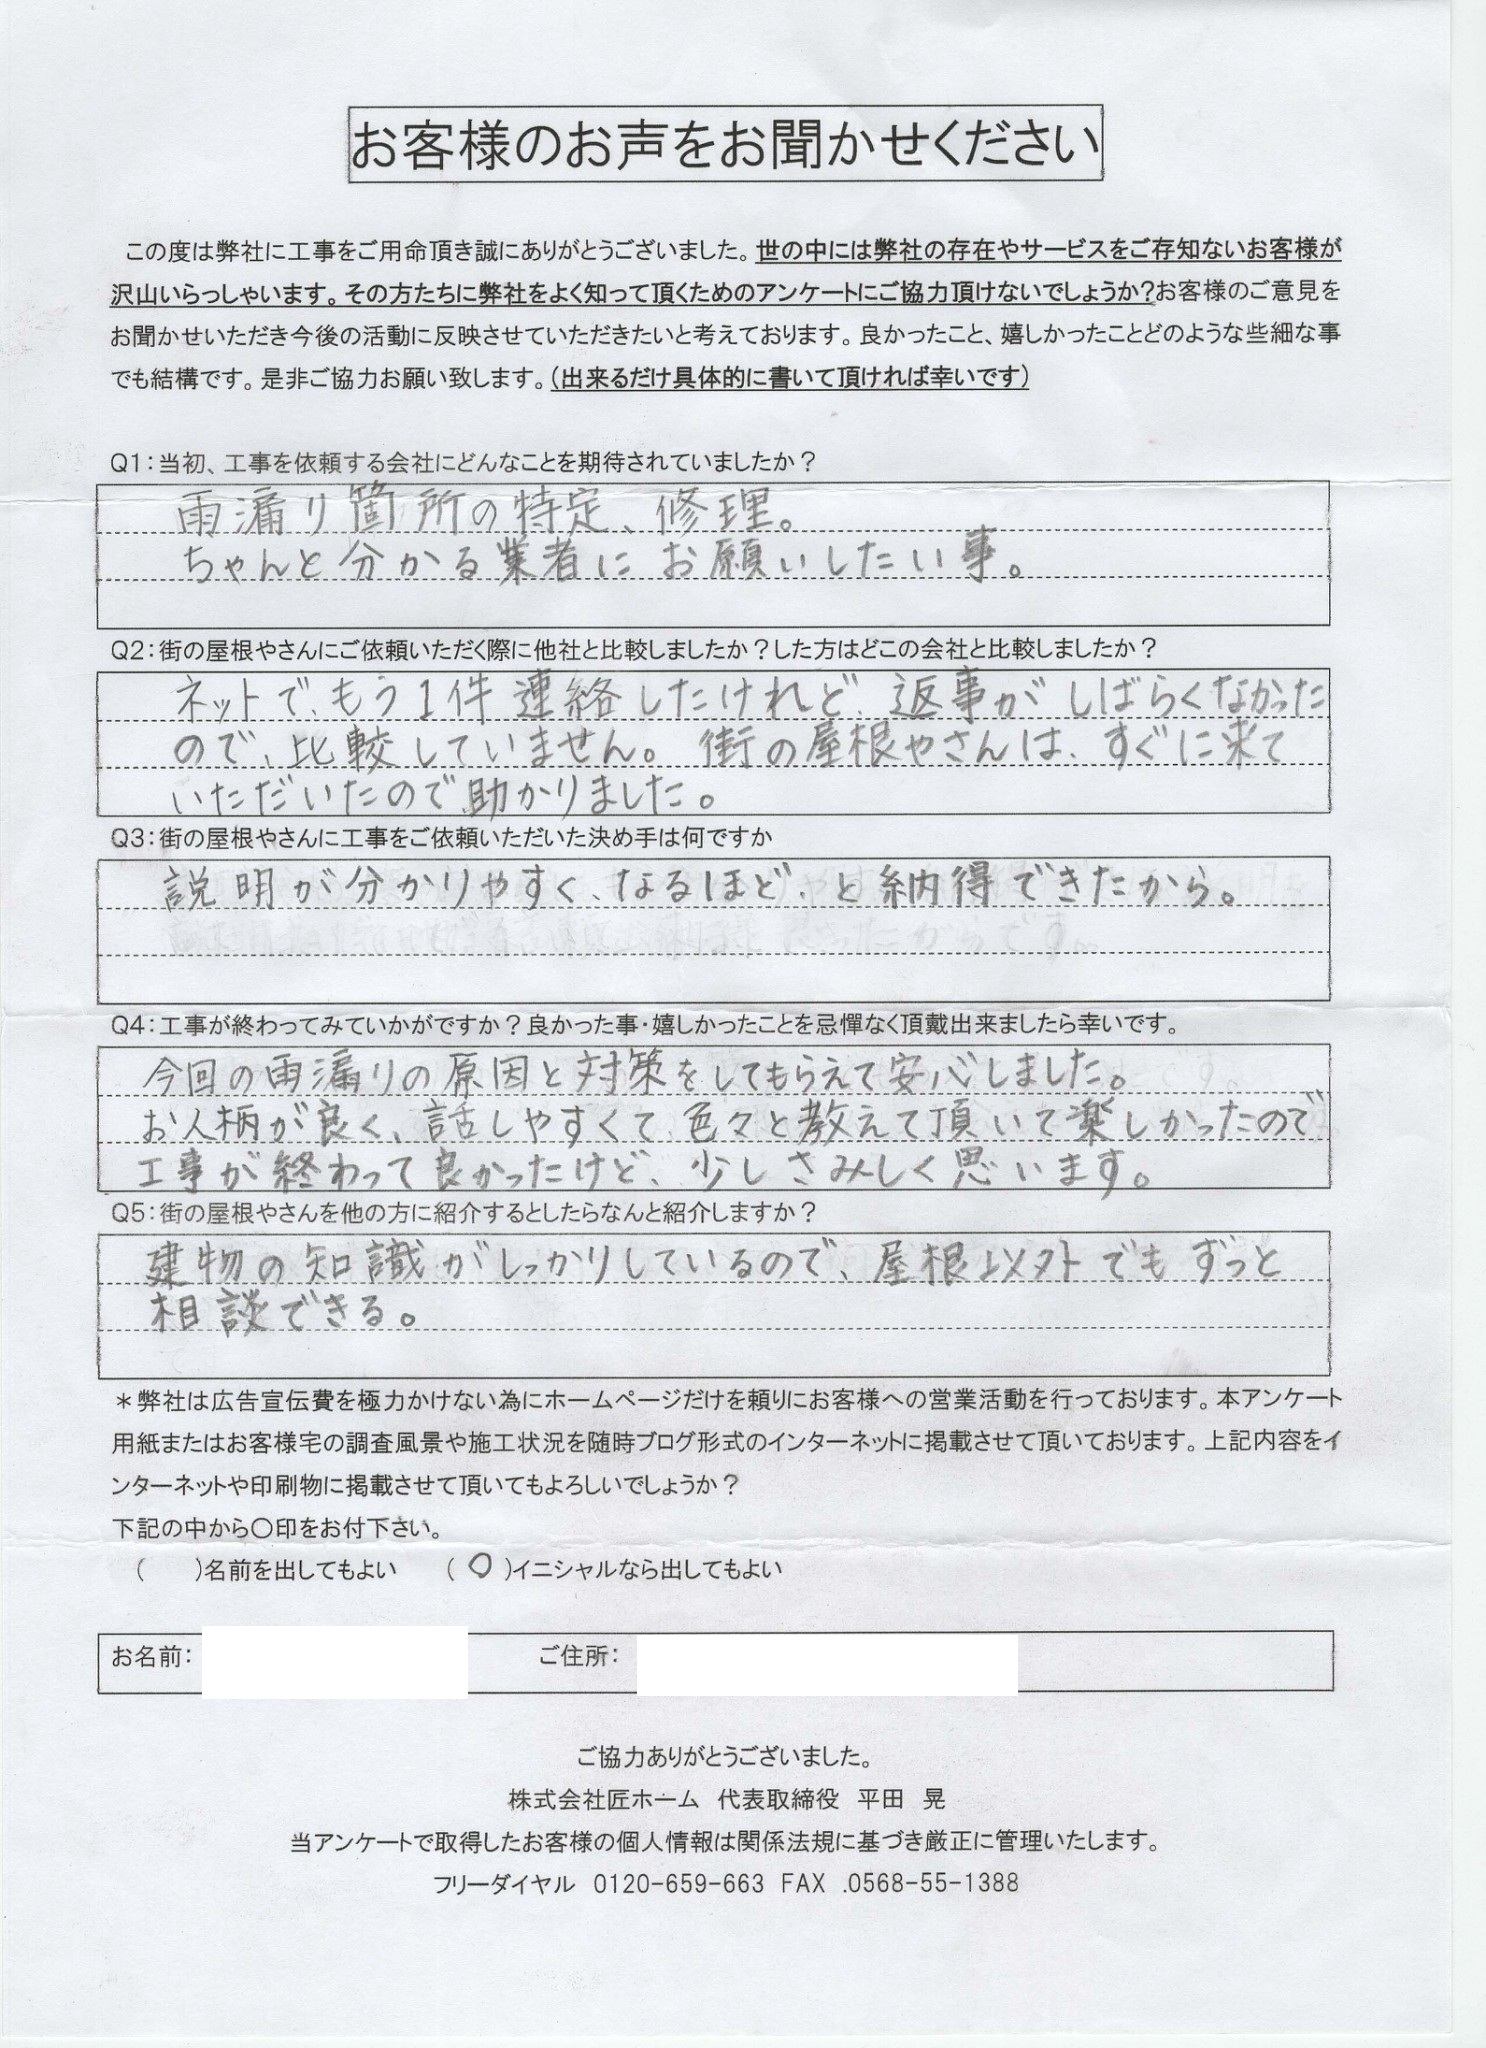 お客様のお声をお聞かせください
この度は弊社に工事をご用命頂き誠にありがとうございました。世の中には弊社の存在やサービスをご存知ないお客様が
沢山いらっしゃいます。その方たちに弊社をよく知って頂くためのアンケートにご協力頂けないでしょうか?お客様のご意見を
お聞かせいただき今後の活動に反映させていただきたいと考えております。良かったこと、嬉しかったことどのような些細な事
でも結構です。是非ご協力お願い致します。(出来るだけ具体的に書いて頂ければ幸いです)
Q1:当初、工事を依頼する会社にどんなことを期待されていましたか?
雨漏り箇所の特定、修理。
ちゃんと分かる業者にお願いしたい事。
Q2:街の屋根やさんにご依頼いただく際に他社と比較しましたか?した方はどこの会社と比較しましたか?
ネットで、もう1件連絡したけれど、返事がしばらくなかった
ので、比較していません。街の屋根やさんは、すぐに来て
いただいたので、助かりました。
Q3:街の屋根やさんに工事をご依頼いただいた決め手は何ですか
説明が分かりやすく、なるほど、と納得できたから。
Q4:工事が終わってみていかがですか?良かった事・嬉しかったことを忌憚なく頂戴出来ましたら幸いです。
今回の雨漏りの原因と対策をしてもらえて安心しました。
お人柄が良く、話しやすくて、色々と教えて頂いて楽しかったので
工事が終わって良かったけど、少しさみしく思います。
Q5:街の屋根やさんを他の方に紹介するとしたらなんと紹介しますか?
建物の知識がしっかりしているので、屋根以外でもずっと
相談できる。
＊弊社は広告宣伝費を極力かけない為にホームページだけを頼りにお客様への営業活動を行っております。本アンケート
用紙またはお客様宅の調査風景や施工状況を随時ブログ形式のインターネットに掲載させて頂いております。上記内容をイ
ンターネットや印刷物に掲載させて頂いてもよろしいでしょうか?
下記の中から○印をお付下さい。
(　　)名前を出してもよい　　(○)イニシャルなら出してもよい
お名前:　　ご住所:
ご協力ありがとうございました。
株式会社匠ホーム　代表取締役　平田　晃
当アンケートで取得したお客様の個人情報は関係法規に基づき厳正に管理いたします。
フリーダイヤル　0120-659-663　FAX .0568-55-1388